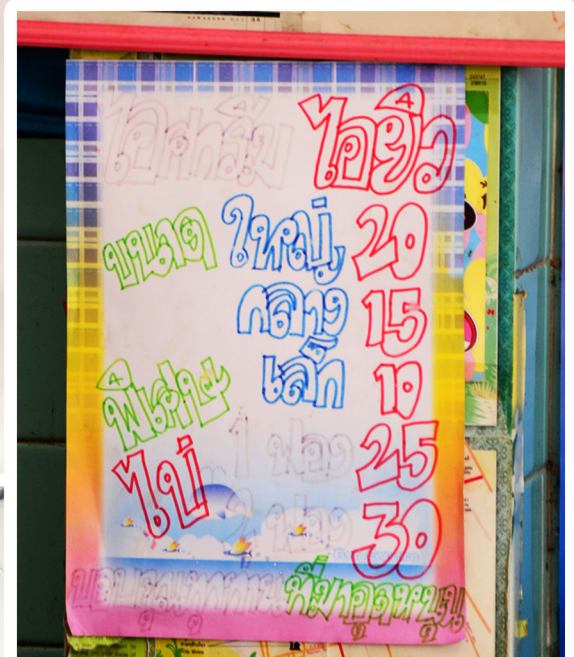 ไอศกรีม ไอยิว
ขนาด ใหญ่ 20
กลาง 15
เล็ก 10
พิเศษ
ไข่ 1 ฟอง 25
2 ฟอง 30
ขอบคุณทุกท่านที่มาอุดหนุน